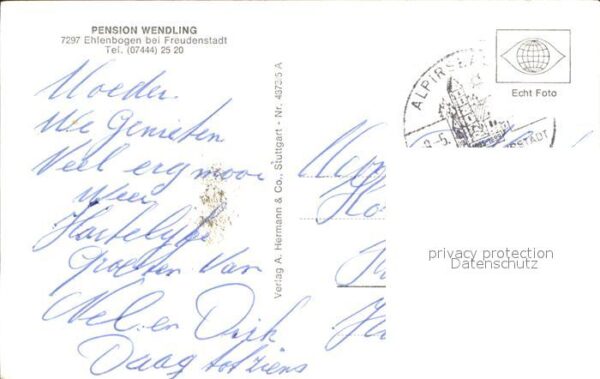 PENSION WENDLING
7297 Ehlenbogen bei Freudenstadt
Tel. (07444) 25 20
Moeder
We Genieten
Veel erg mooi
Weer
Hartelijke
Groeten Van
Nel en Dirk
Daag tot ziens
Verlag A. Hermann & Co., Stuttgart - Nr.
ALPIRSBA
Echt Foto
privacy protection
Datenschutz